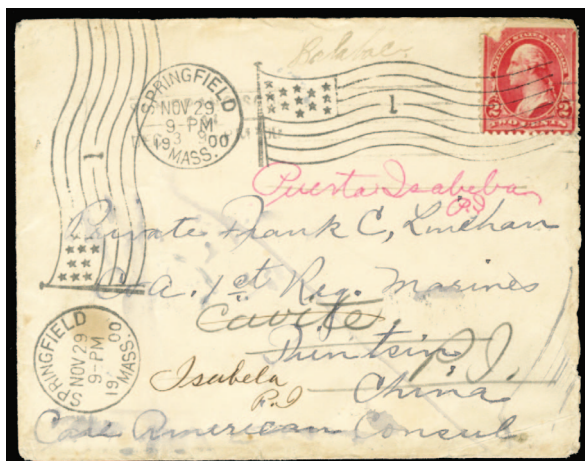 Balabac
SPRINGFIELD
NOV 29
9-PM
1900
MASS.
1
1
UNITED STATES POSTAGE
2 2
TWO CENTS
Puerta Isabeba
P.I
Private Frank C, Linehan
Co A. 1st Reg. Marines
Cavite, P.I.
Tientsin
China
Isabela
P.I
Care American Consul
SPRINGFIELD
NOV 29
9-PM
1900
MASS.